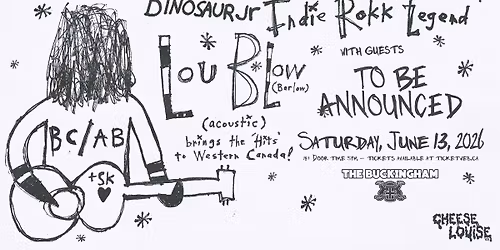 DINOSAUR Jr Indie Rokk Legend
LOU BLOW
(Barlow)
(acoustic)
brings the 'Hits'
to Western Canada!
WITH GUESTS
TO BE
ANNOUNCED
SATURDAY, JUNE 13, 2026
DOOR TIME 7PM - TICKETS AVAILABLE AT TICKETWEB.CA
THE BUCKINGHAM
BC/AB
+SK
CHEESE
LOUISE